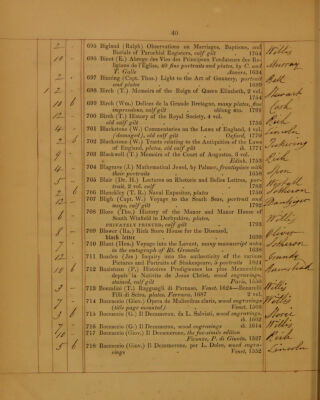 40
2 - 695 Bigland (Ralph) Observations on Marriages, Baptisms, and Willis
Burials of Parochial Registers, calf gilt 1764
10 - 696 Binet (E.) Abrege des Vies des Principaux Fondateurs des Re- Murray
ligions de l'Eglise, 40 fine portraits and plates, by C. and
T. Galle Anvers, 1634
697 Binning (Capt. Thos.) Light to the Art of Gunnery, portrait Ball
and plates 1689
1 2 - 698 Birch (T.) Memoirs of the Reign of Queen Elizabeth, 2 vol. Stewart
1754
10 6 699 Birch (Wm.) Delices de la Grande Bretagne, many plates, fine
impressions, calf gilt oblong 4to. 1791
700 Birch (T.) History of the Royal Society, 4 vol. Rich
old calf gilt 1756
701 Blackstone (W.) Commentaries on the Laws of England, 4 vol. Lincoln
(damaged), old calf gilt Oxford, 1770
2 6 702 Blackstone (W.) Tracts relating to the Antiquities the Laws Pickering
of England, plates, old calf gilt ib. 1771
9 - 703 Blackwell (T.) Memoirs of the Court of Augustus, 3 vol. Rich
Edinb. 1753
4 - 704 Blagrave (J.) Mathematical Jewel, by Palmer, frontispiece with
their portraits
705 Blair (Dr. H.) Lectures on Rhetoric and Belles Lettres, por-
trait, 2 vol. calf 1783
2 6 706 Blanckley (T. R.) Naval Expositor, plates 1750
707 Bligh (Capt. W.) Voyage to the South Seas, portrait and
maps, calf gilt 1792
6 - 708 Blore (Thos.) History of the Manor and Manor House of Willis
South Winfield in Derbyshire, plates,
PRIVATELY PRINTED, calf gilt 1793
709 Blower (Ra.) Rich Store House for the Diseased,
black letter 1639
710 Blunt (Hen.) Voyage into the Levant, many manuscript notes
in the autograph of Bt. Grenville 1638
711 Boaden (Jas.) Inquiry into the authenticity of the various
Pictures and Portraits of Shakspeare, 5 portraits 1824
10 6 712 Boaistuau (P.) Histoires Prodigieuses les plus Memorables
depuis la Nativite de Jesus Christ, wood engravings,
stained, calf gilt Paris, 1560
713 Boccalini (T.) Ragguagli di Parnaso, Venet. 1624—Bonarelli Willis
Filli di Sciro, plates, Ferrara, 1607
7 - 714 Boccaccio (Giov.) Opera de Mulieribus claris, wood engravings Willis
(title page mounted) Venet. 1506
3 6 715 Boccaccio (G.) Il Decamerone, da L. Salviati, wood engravings,
ib. 1602
7 - 716 Boccaccio (G.) Il Decamerone, wood engravings ib. 1614 Willis
10 - 717 Boccaccio (Giov.) Il Decamerone, the facsimile edition Rich
Firenze, P. di Giunta, 1527
5 6 718 Boccaccio (Giov.) Il Decamerone, per L. Dolce, wood engra- Lincoln
vings Venet. 1552